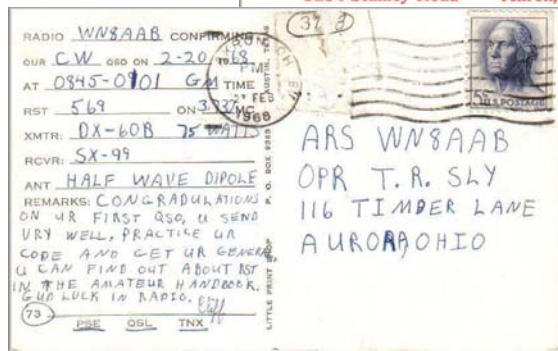 RADIO WN8AAB CONFIRMING
OUR CW QSO ON 2-20 1968
AT 0845-0901 GM TIME
RST 569 ON 3.737 MC
XMTR: DX-60B 75 WATTS
RCVR: SX-99
ANT HALF WAVE DIPOLE
REMARKS: CONGRADULATIONS
ON UR FIRST QSO, U SEND
VRY WELL, PRACTICE UR
CODE AND GET UR GENERAL
U CAN FIND OUT ABOUT RST
IN THE AMATEUR HANDBOOK.
GUD LUCK IN RADIO. Cliff
73
PSE QSL TNX
LITTLE PRINT SHOP P. O. BOX 9363 AUSTIN, TEXAS
37
PM
FEB
1968
5¢ U.S. POSTAGE
ARS WN8AAB
OPR T.R. SLY
116 TIMBER LANE
AURORA OHIO